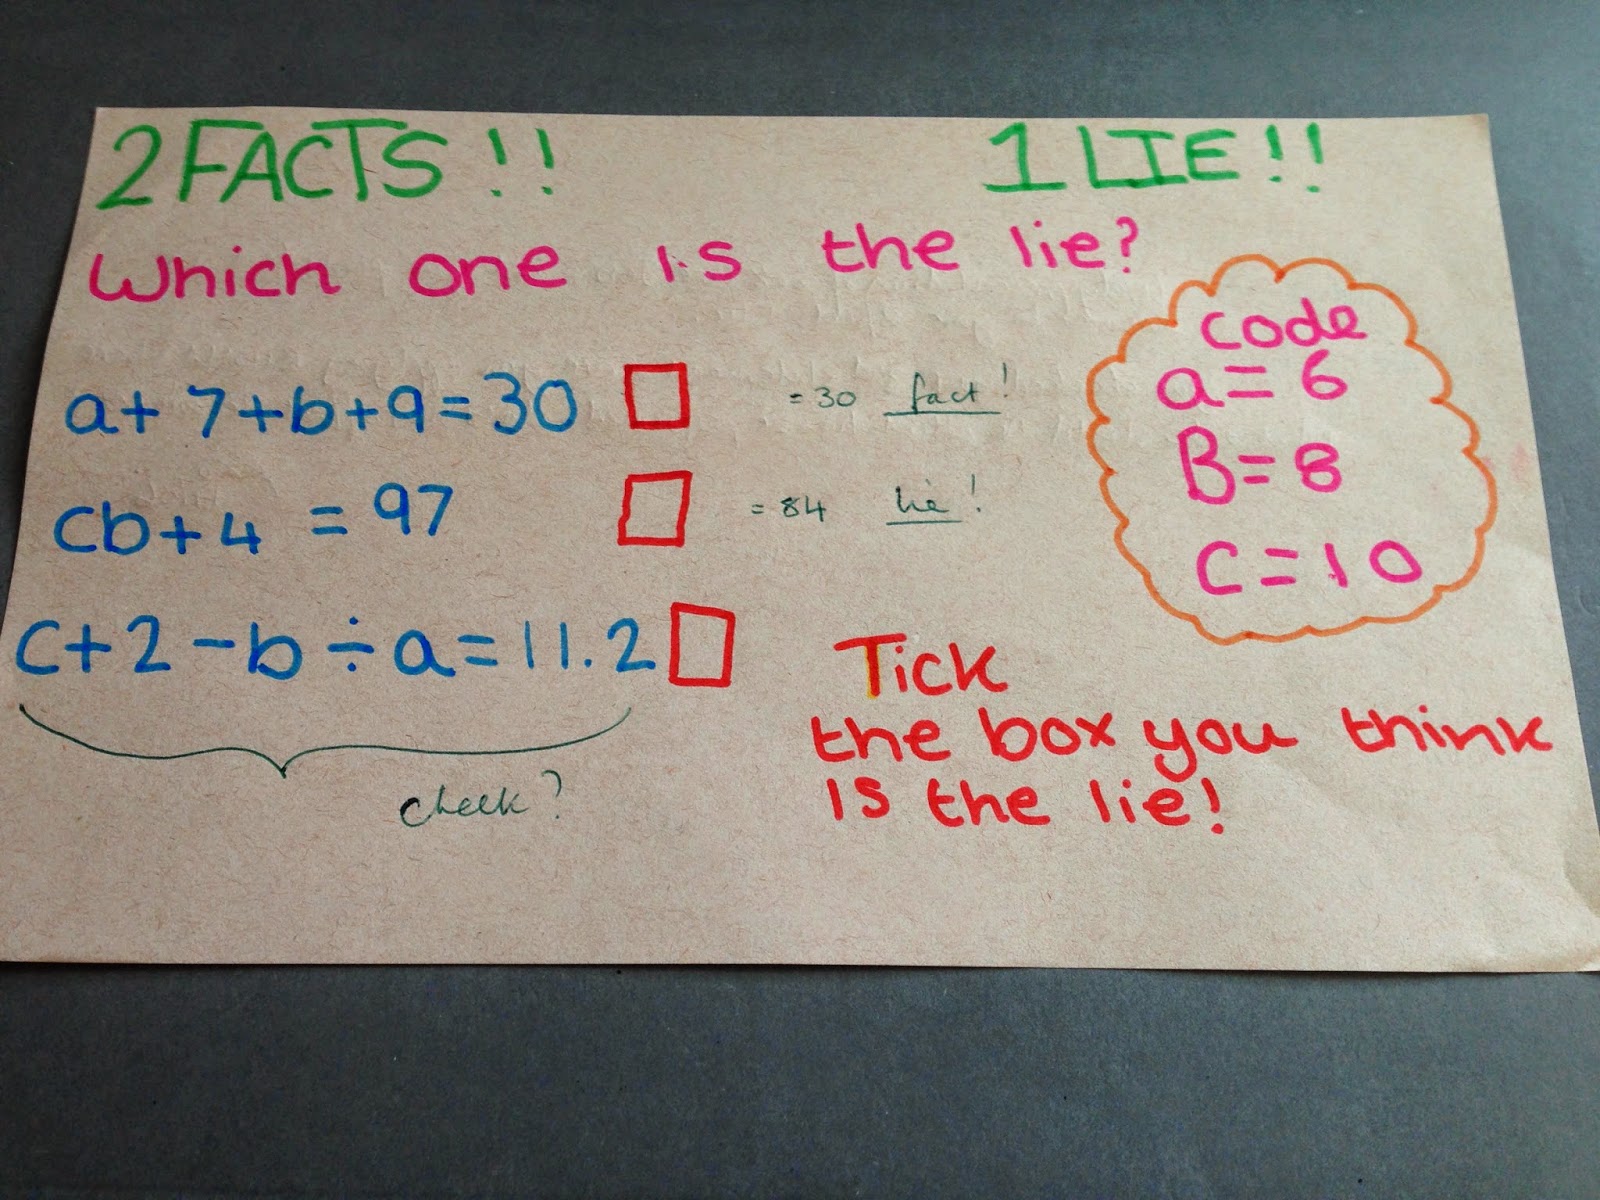 2 FACTS!! 1 LIE!!
Which one is the lie?
a + 7 + b + 9 = 30 = 30 fact!
cb + 4 = 97 = 84 lie!
c + 2 - b ÷ a = 11.2
check?
code
a = 6
B = 8
c = 10
Tick
the box you think
is the lie!